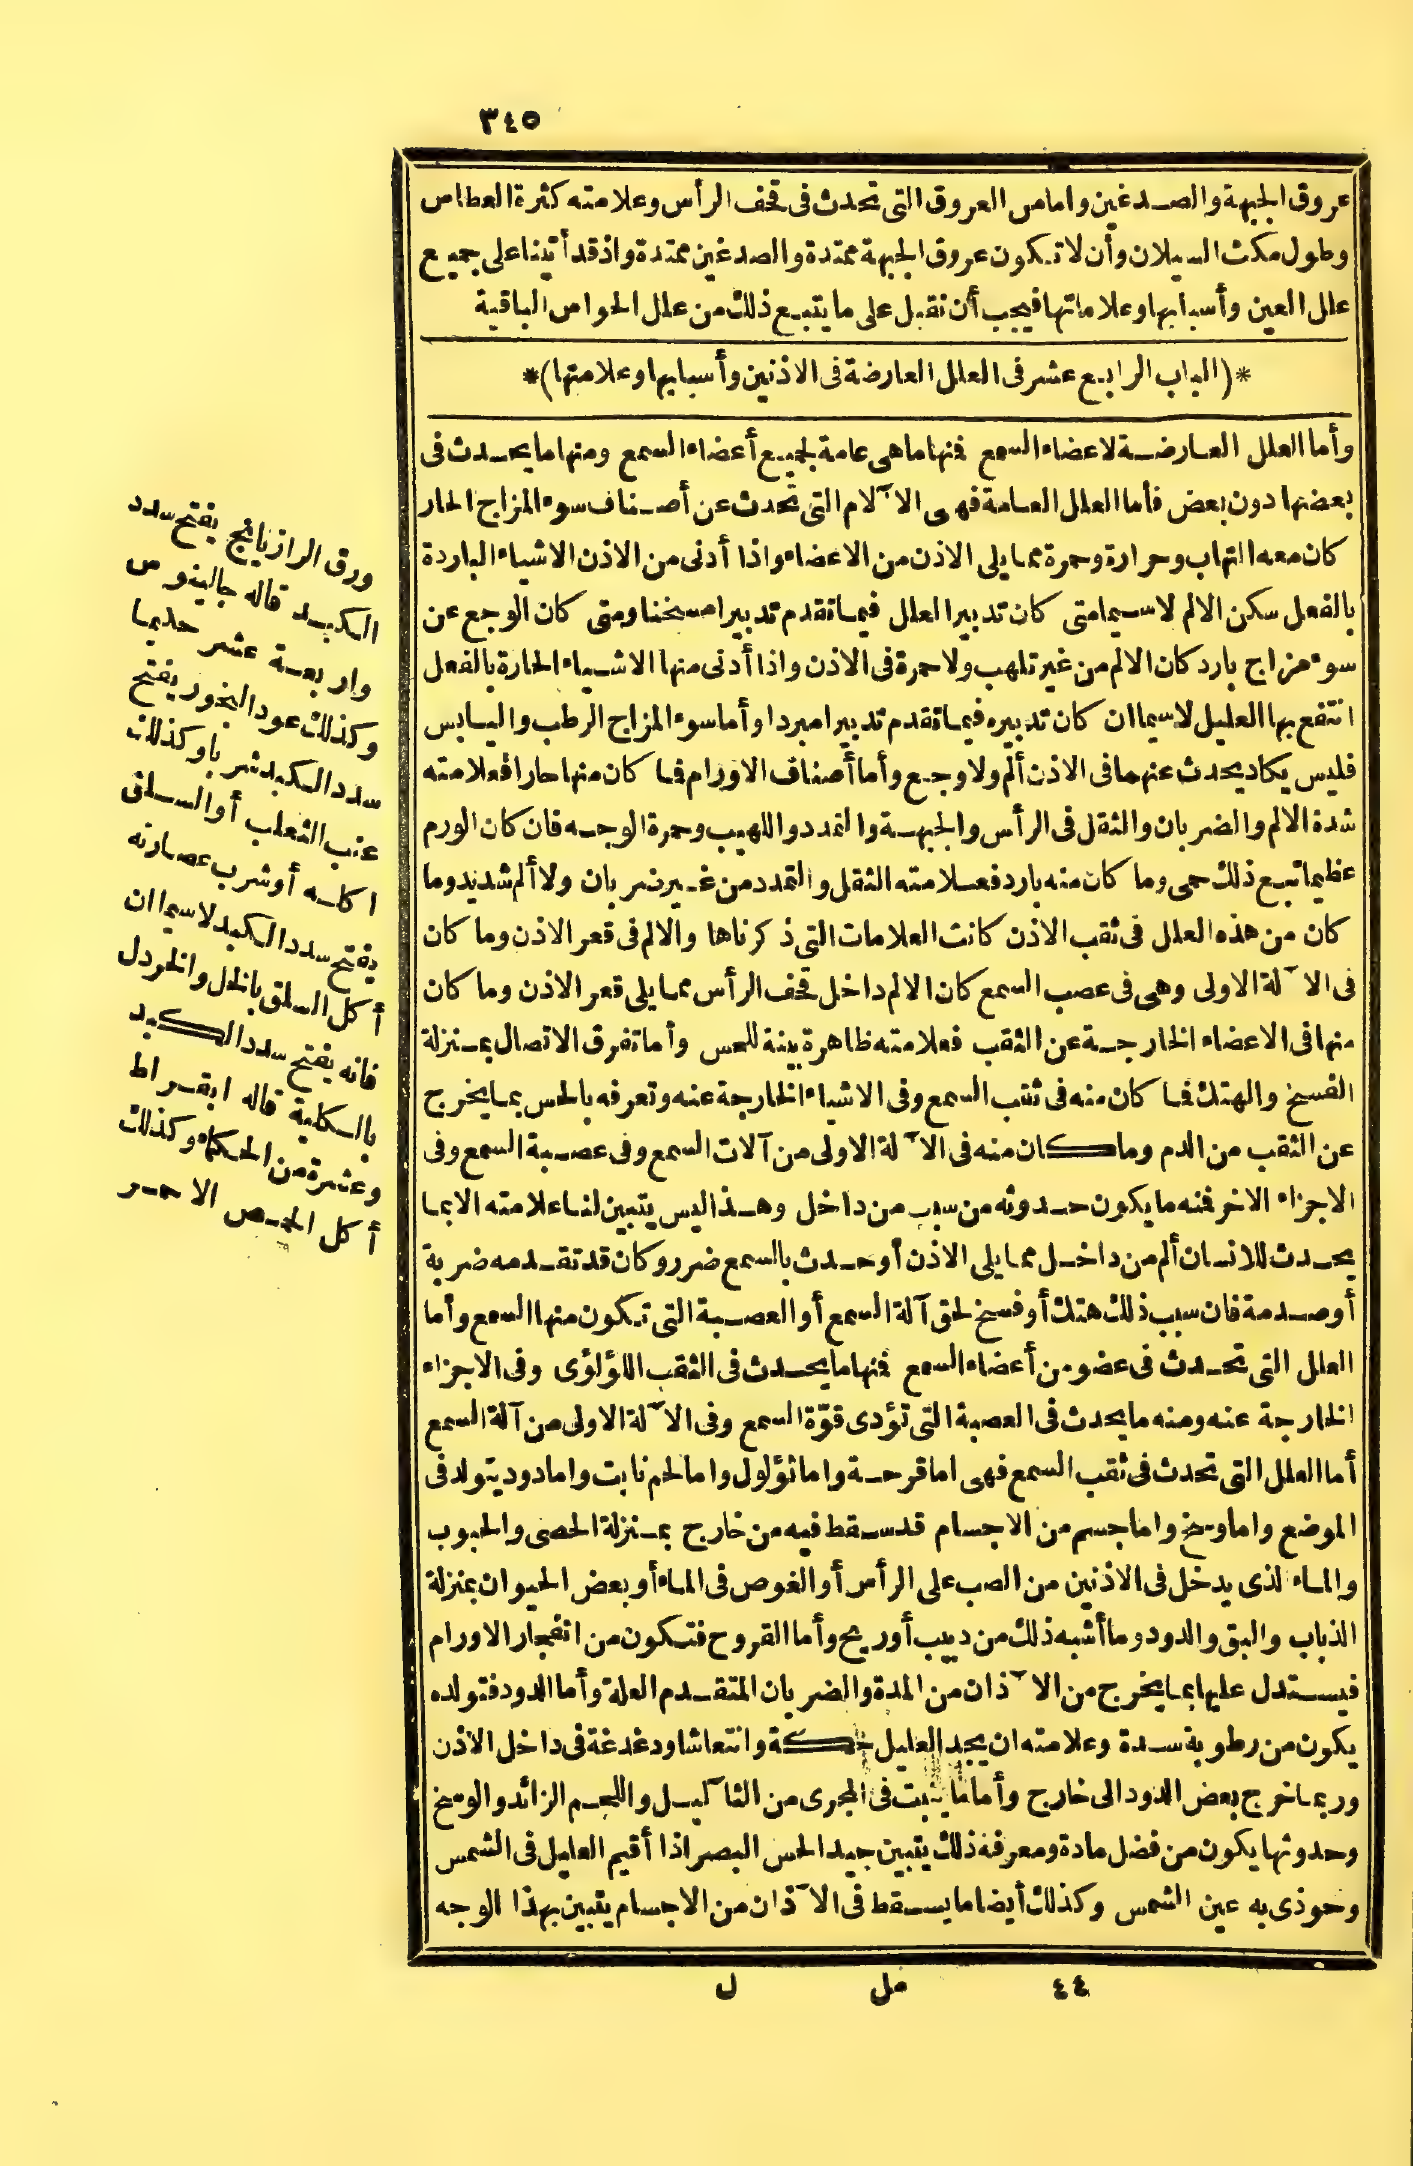 ٣٤٥
عروق الجبهة والصدغين واما من العروق التى تحدث فى قحف الرأس وعلامته كثرة العطاس
وطول مكث السيلان وأن لا تكون عروق الجبهة ممتدة والصدغين ممتدة واذ قد أتينا على جميع
علل العين وأسبابها وعلاماتها فيجب أن نقبل على ما يتبع ذلك من علل الحواس الباقية
*(الباب الرابع عشر فى العلل العارضة فى الاذنين وأسبابها وعلامتها)*
وأما العلل العارضة لاعضاء السمع فمنها ما هى عامة لجميع أعضاء السمع ومنها ما يحدث فى
بعضها دون بعض فأما العلل العامة فهى الآلام التى تحدث عن أصناف سوء المزاج الحار
كان معه التهاب وحرارة وحمرة مما يلى الاذن من الاعضاء واذا أدنى من الاذن الاشياء الباردة
بالفعل سكن الالم لاسيما متى كان تدبير العلل فيما تقدم تدبيرا مسخنا ومتى كان الوجع عن
سوء مزاج بارد كان الالم من غير تلهب ولا حمرة فى الاذن واذا أدنى منها الاشياء الحارة بالفعل
انتفع بها العليل لاسيما ان كان تدبيره فيما تقدم تدبيرا مبردا وأما سوء المزاج الرطب واليابس
فليس يكاد يحدث عنهما فى الاذن ألم ولا وجع وأما أصناف الاورام فما كان منها حارا فعلامته
شدة الالم والضربان والثقل فى الرأس والجبهة والتمدد واللهيب وحمرة الوجه فان كان الورم
عظيما تبع ذلك حمى وما كان منه بارد فعلامته الثقل والتمدد من غير ضربان ولا ألم شديد وما
كان من هذه العلل فى ثقب الاذن كانت العلامات التى ذكرناها والالم فى قعر الاذن وما كان
فى الآلة الاولى وهى فى عصب السمع كان الالم داخل قحف الرأس مما يلى قعر الاذن وما كان
منها فى الاعضاء الخارجة عن الثقب فعلامته ظاهرة بينة للحس وأما تفرق الاتصال بمنزلة
الفسخ والهتك فما كان منه فى ثقب السمع وفى الاشياء الخارجة عنه وتعرفه بالحس بما يخرج
عن الثقب من الدم وما كان منه فى الآلة الاولى من آلات السمع وفى عصبة السمع وفى
الاجزاء الاخر فمنه ما يكون حدوثه من سبب من داخل وهذا ليس يتبين لنا علامته الا بما
يحدث للانسان ألم من داخل مما يلى الاذن أو حدث بالسمع ضرر وكان قد تقدمه ضربة
أو صدمة فان سبب ذلك هتك أو فسخ لحق آلة السمع أو العصبة التى تكون منها السمع وأما
العلل التى تحدث فى عضو من أعضاء السمع فمنها ما يحدث فى الثقب اللؤلؤى وفى الاجزاء
الخارجة عنه ومنه ما يحدث فى العصبة التى تؤدى قوّة السمع وفى الآلة الاولى من آلة السمع
أما العلل التى تحدث فى ثقب السمع فهى اما قرحة واما ثؤلول واما لحم نابت واما دود يتولد فى
الموضع واما وسخ واما جسم من الاجسام قد سقط فيه من خارج بمنزلة الحصى والحبوب
والماء الذى يدخل فى الاذنين من الصب على الرأس أو الغوص فى الماء أو بعض الحيوان بمنزلة
الذباب والبق والدود وما أشبه ذلك من دبيب أو ريح وأما القروح فتكون من انفجار الاورام
فيستدل عليها بما يخرج من الآذان من المدة والضربان المتقدم العلة وأما الدود فتولده
يكون من رطوبة سدة وعلامته ان يجد العليل حكة وانتعاشا ودغدغة فى داخل الاذن
وربما خرج بعض الدود الى خارج وأما ما ينبت فى المجرى من الثآليل واللحم الزائد والوسخ
وحدوثها يكون من فضل مادة ومعرفة ذلك يتبين جيد الحس البصر اذا أقيم العليل فى الشمس
وحوذى به عين الشمس وكذلك أيضا ما يسقط فى الآذان من الاجسام يتبين بهذا الوجه
٤٤ مل ل
ورق الرازيانج يفتح سدد
الكبد قاله جالينوس
واربعة عشر حكيما
وكذلك عود البخور يفتح
سدد الكبد شربا وكذلك
عنب الثعلب أو السلق
اكله أو شرب عصارته
يفتح سدد الكبد لاسيما ان
أكل السلق بالخل والخردل
فانه يفتح سدد الكبد
بالكلية قاله ابقراط
وعشرة من الحكماء وكذلك
أكل الحمص الاحمر